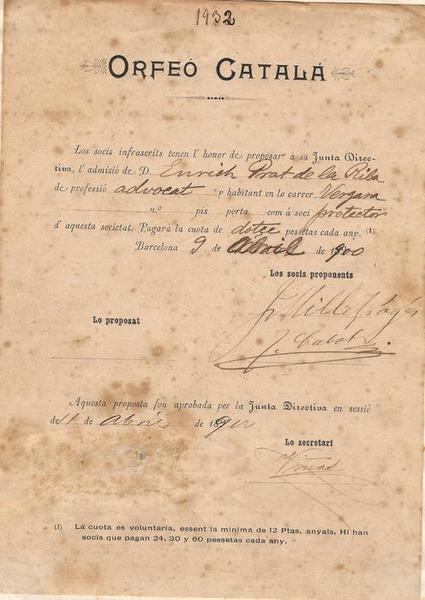 1932
ORFEÓ CATALÁ
Los socis infrascrits tenen l'honor de proposar á sa Junta Direc-
tiva, l'admisió de D. Enrich Prat de la Riba
de professió advocat y habitant en lo carrer Vergara
n.º pis porta com á soci protector
d'aquesta societat. Pagará la cuota de dotce pessetas cada any. (1)
Barcelona 9 de Abril de 1900
Los socis proponents
Lo proposat
J. Cabot
Aquesta proposta fou aprobada per la Junta Directiva en sessió
de 11 de Abril de 1900
Lo secretari
Viñas
(1) La cuota es voluntaria, essent la mínima de 12 Ptas. anyals. Hi han
socis que pagan 24, 30 y 60 pessetas cada any.